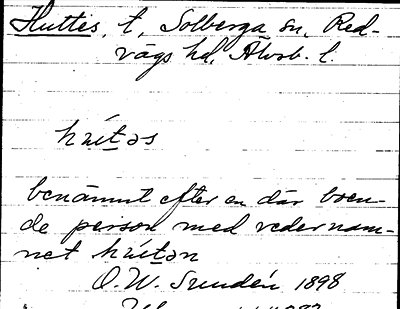 Huttes, t, Solberga sn, Red-
vägs hd, Älvsb. l.
hu̇təs
benämnt efter en där boen-
de person med vedernam-
net hu̇tən
O.W. Sundén 1898